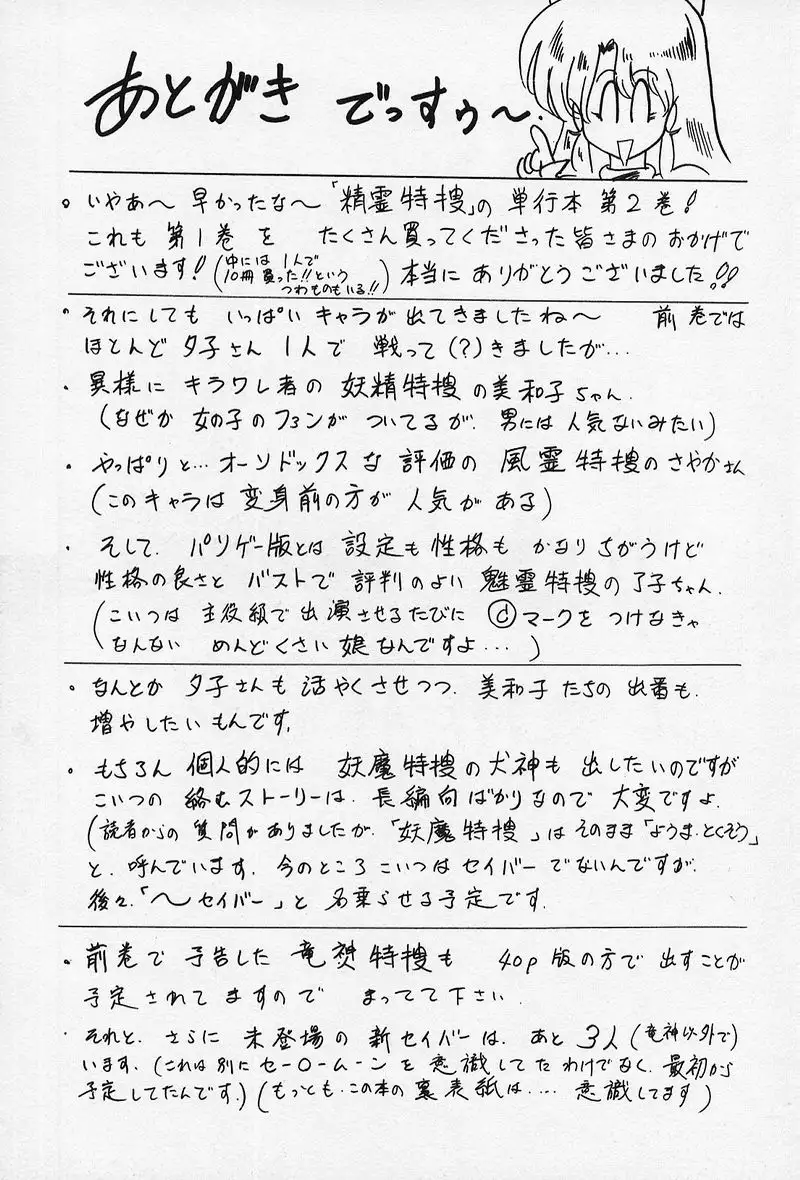 あとがき でっすぅ〜.
。いやあ〜 早かったな〜「精霊特捜」の 単行本 第2巻!
これも 第1巻 を たくさん買ってくださった皆さまの おかげで
ございます!(中には 1人で
10冊買った!!という
つわものもいる!!) 本当に ありがとう ございました!!
・それにしても いっぱい キャラが出てきましたね〜 前巻では
ほとんど 夕子さん 1人で 戦って(?)きましたが…
・異様に キラワレ者の 妖精特捜の美和子ちゃん.
(なぜか 女の子のファンが ついてるが. 男には人気ないみたい)
・やっぱりと… オーソドックスな 評価の 風霊特捜のさやかさん
(このキャラは 変身前の方が 人気が ある)
・そして. パソゲー版とは 設定も性格も かなりちがうけど
性格の良さと バストで 評判のよい 魅霊特捜の了子ちゃん.
(こいつは 主役級で出演させるたびに ⓒマークを つけなきゃ
なんない めんどくさい 娘なんですよ… )
。なんとか 夕子さんも 活やくさせつつ. 美和子 たちの 出番も.
増やしたい もんです.
・もちろん 個人的には 妖魔特捜の犬神も 出したいのですが
こいつの 絡むストーリーは. 長編向ばかりなので 大変ですよ.
(読者からの 質問がありましたが.「妖魔特捜」はそのまま「ようま・とくそう」
と. 呼んでいます. 今のところ こいつはセイバーでないんですが.
後々.「〜セイバー」と 名乗らせる予定です.
。前巻で 予告した 竜神特捜も 40p版の方で 出すことが
予定されて ますので まってて下さい.
・それと. さらに 未登場の 新セイバーは. あと 3人(竜神以外で)
います.(これは 別に セー〇ームーン を 意識してたわけでなく. 最初から
予定してたんです.)(もっとも・この本の 裏表紙は…. 意識してます)